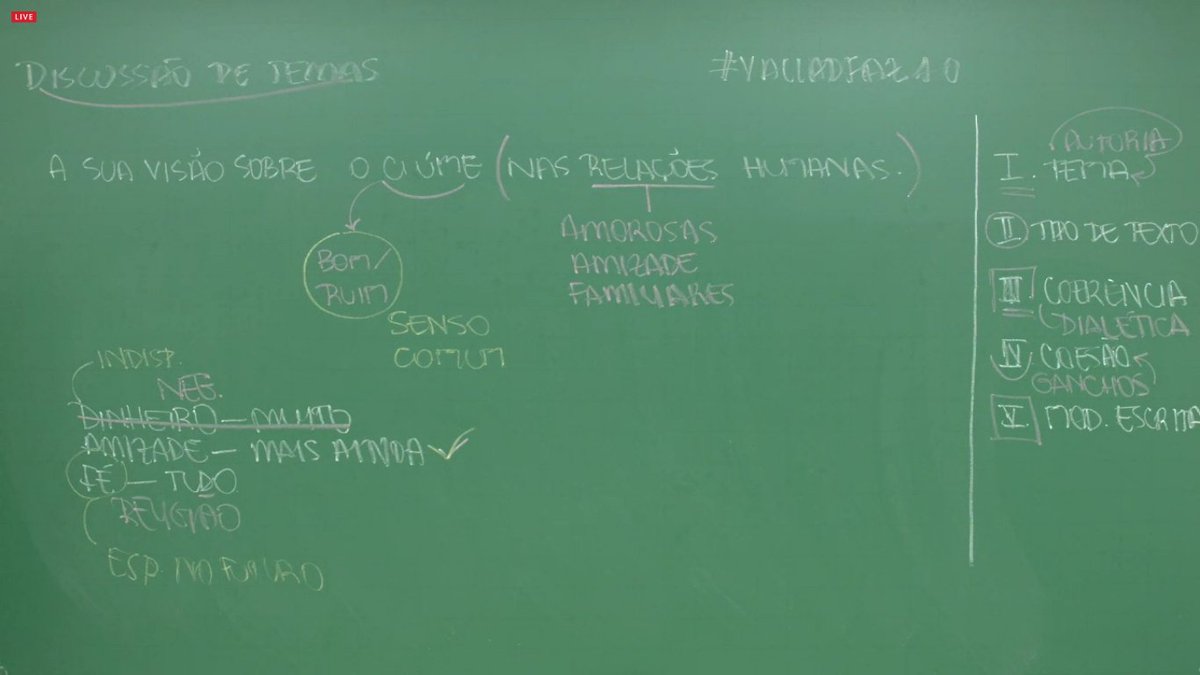 LIVE
DISCUSSÃO DE TEMAS
A SUA VISÃO SOBRE O CIÚME (NAS RELAÇÕES HUMANAS.)
BOM/
RUIM
SENSO
COMUM
AMOROSAS
AMIZADE
FAMILIARES
INDISP.
NEG.
DINHEIRO – MUITO
AMIZADE – MAIS AINDA
FÉ – TUDO
RELIGIÃO
ESP. NO FUTURO
AUTORIA
I. TEMA
II TIPO DE TEXTO
III COERÊNCIA
DIALÉTICA
IV COESÃO
GANCHOS
V. MOD. ESCRITA